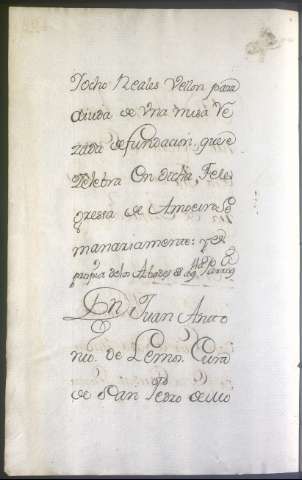 Yocho Reales Vellon para
aiuda de Vna misa Re
zada de fundacion, que se
Zelebra En dicha, Feli
gresia de Amoeiro Se
manariamente; y es
propia de los
Dn Juan Anto
nio de Lemos Cura
de San Pedro de Mo